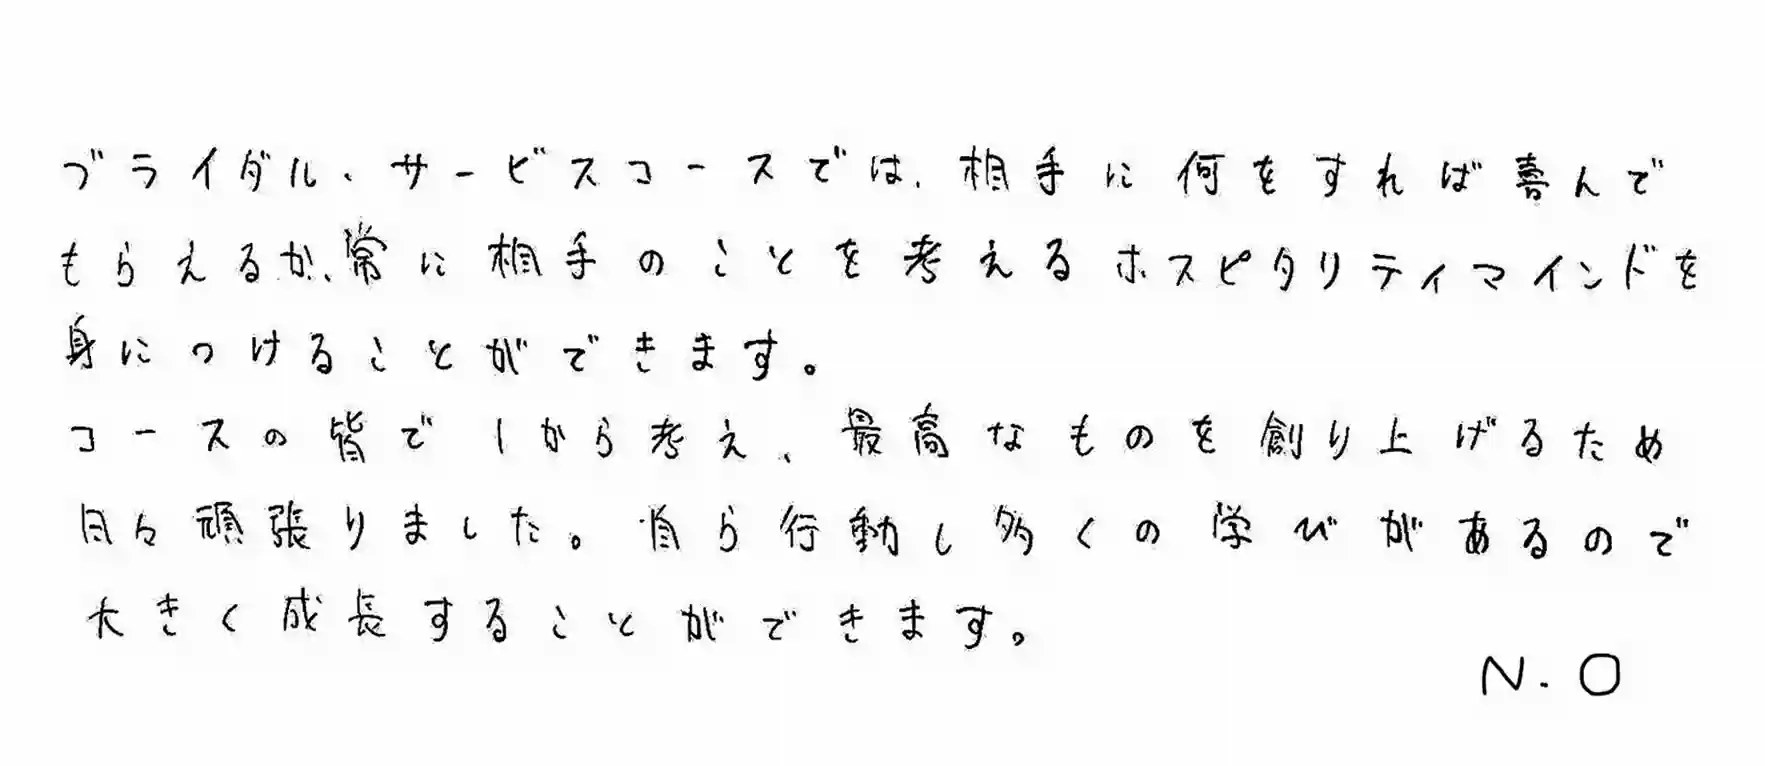 ブライダル・サービスコースでは、相手に何をすれば喜んで
もらえるか、常に相手のことを考えるホスピタリティマインドを
身につけることができます。
コースの皆で1から考え、最高なものを創り上げるため
日々頑張りました。自ら行動し多くの学びがあるので
大きく成長することができます。
N.O